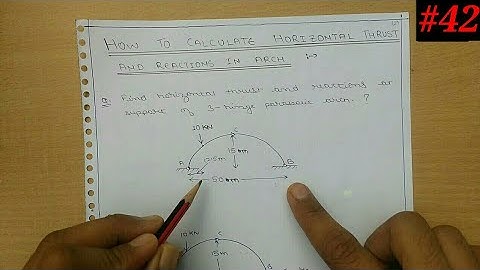 #42
HOW TO CALCULATE HORIZONTAL THRUST
AND REACTIONS IN ARCH :→
Q. Find horizontal thrust and reactions at
support of 3-hinge parabolic arch. ?
10 KN
C
15m
A
12.5m
B
50m
10 KN
C
15m
B